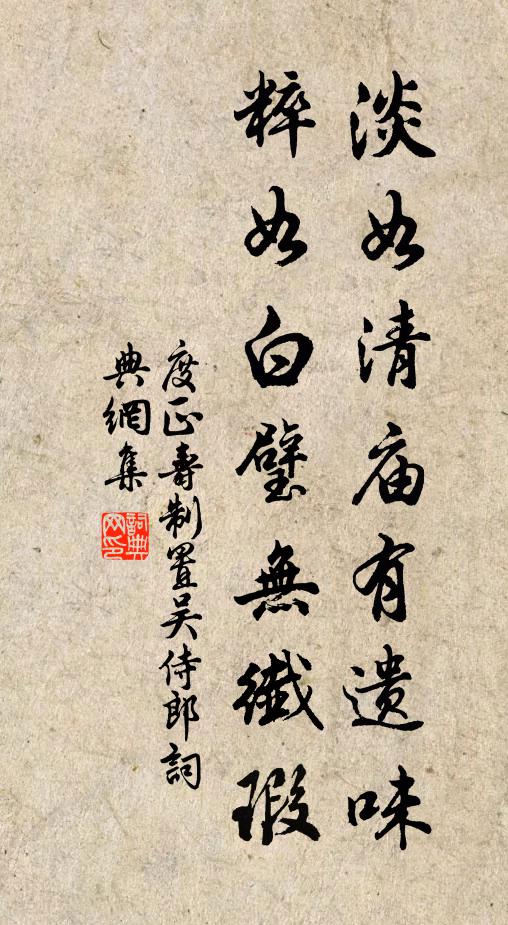 淡如清庙有遗味
粹如白璧無纖瑕
度正壽制置吴侍郎詞
典網集
詞典網印